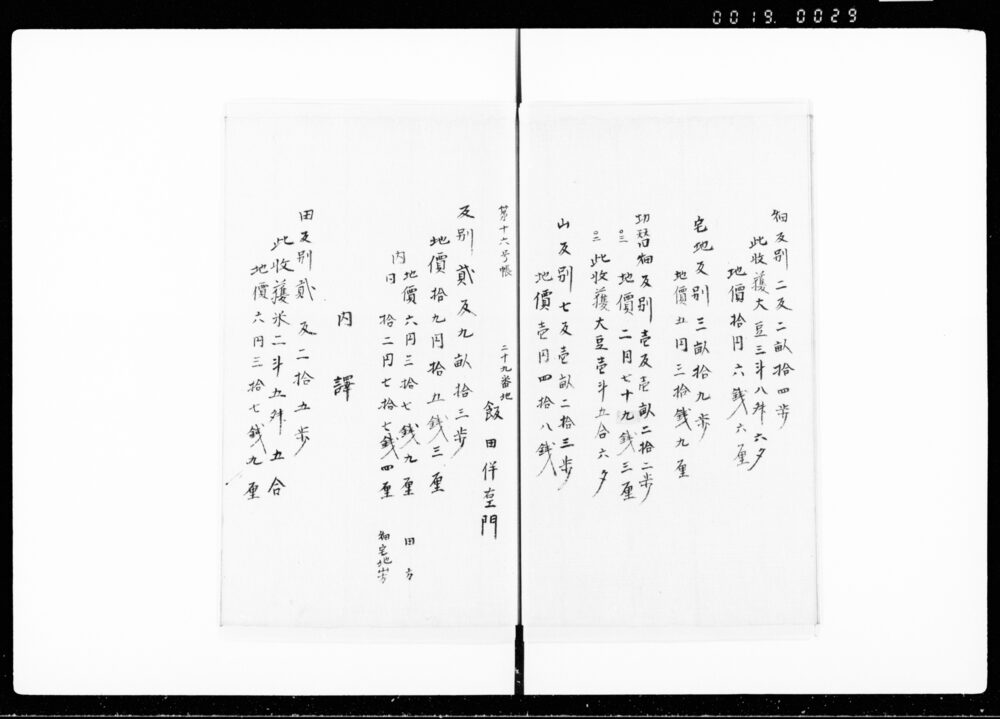 0019.0029
畑反別 二反二畝拾四歩
此收獲大豆三斗八舛六夕
地價拾円六錢六厘
宅地反別三畝拾九歩
地價五円三拾錢九厘
切替畑反別壱反壱畝二拾二歩
地價二円七十九錢三厘
此收獲大豆壱斗五合六夕
山反別七反壱畝二拾三歩
地價壱円四拾八錢
第十六号帳
二十九番地
飯田伴左門
反別貳反九畝拾三歩
地價拾九円拾五錢三厘
内 地價六円三拾七錢九厘 田方
円拾二円七拾七錢四厘 畑宅地山方
内譯
田反別貳反二拾五歩
此收獲米二斗五舛五合
地價六円三拾七錢九厘